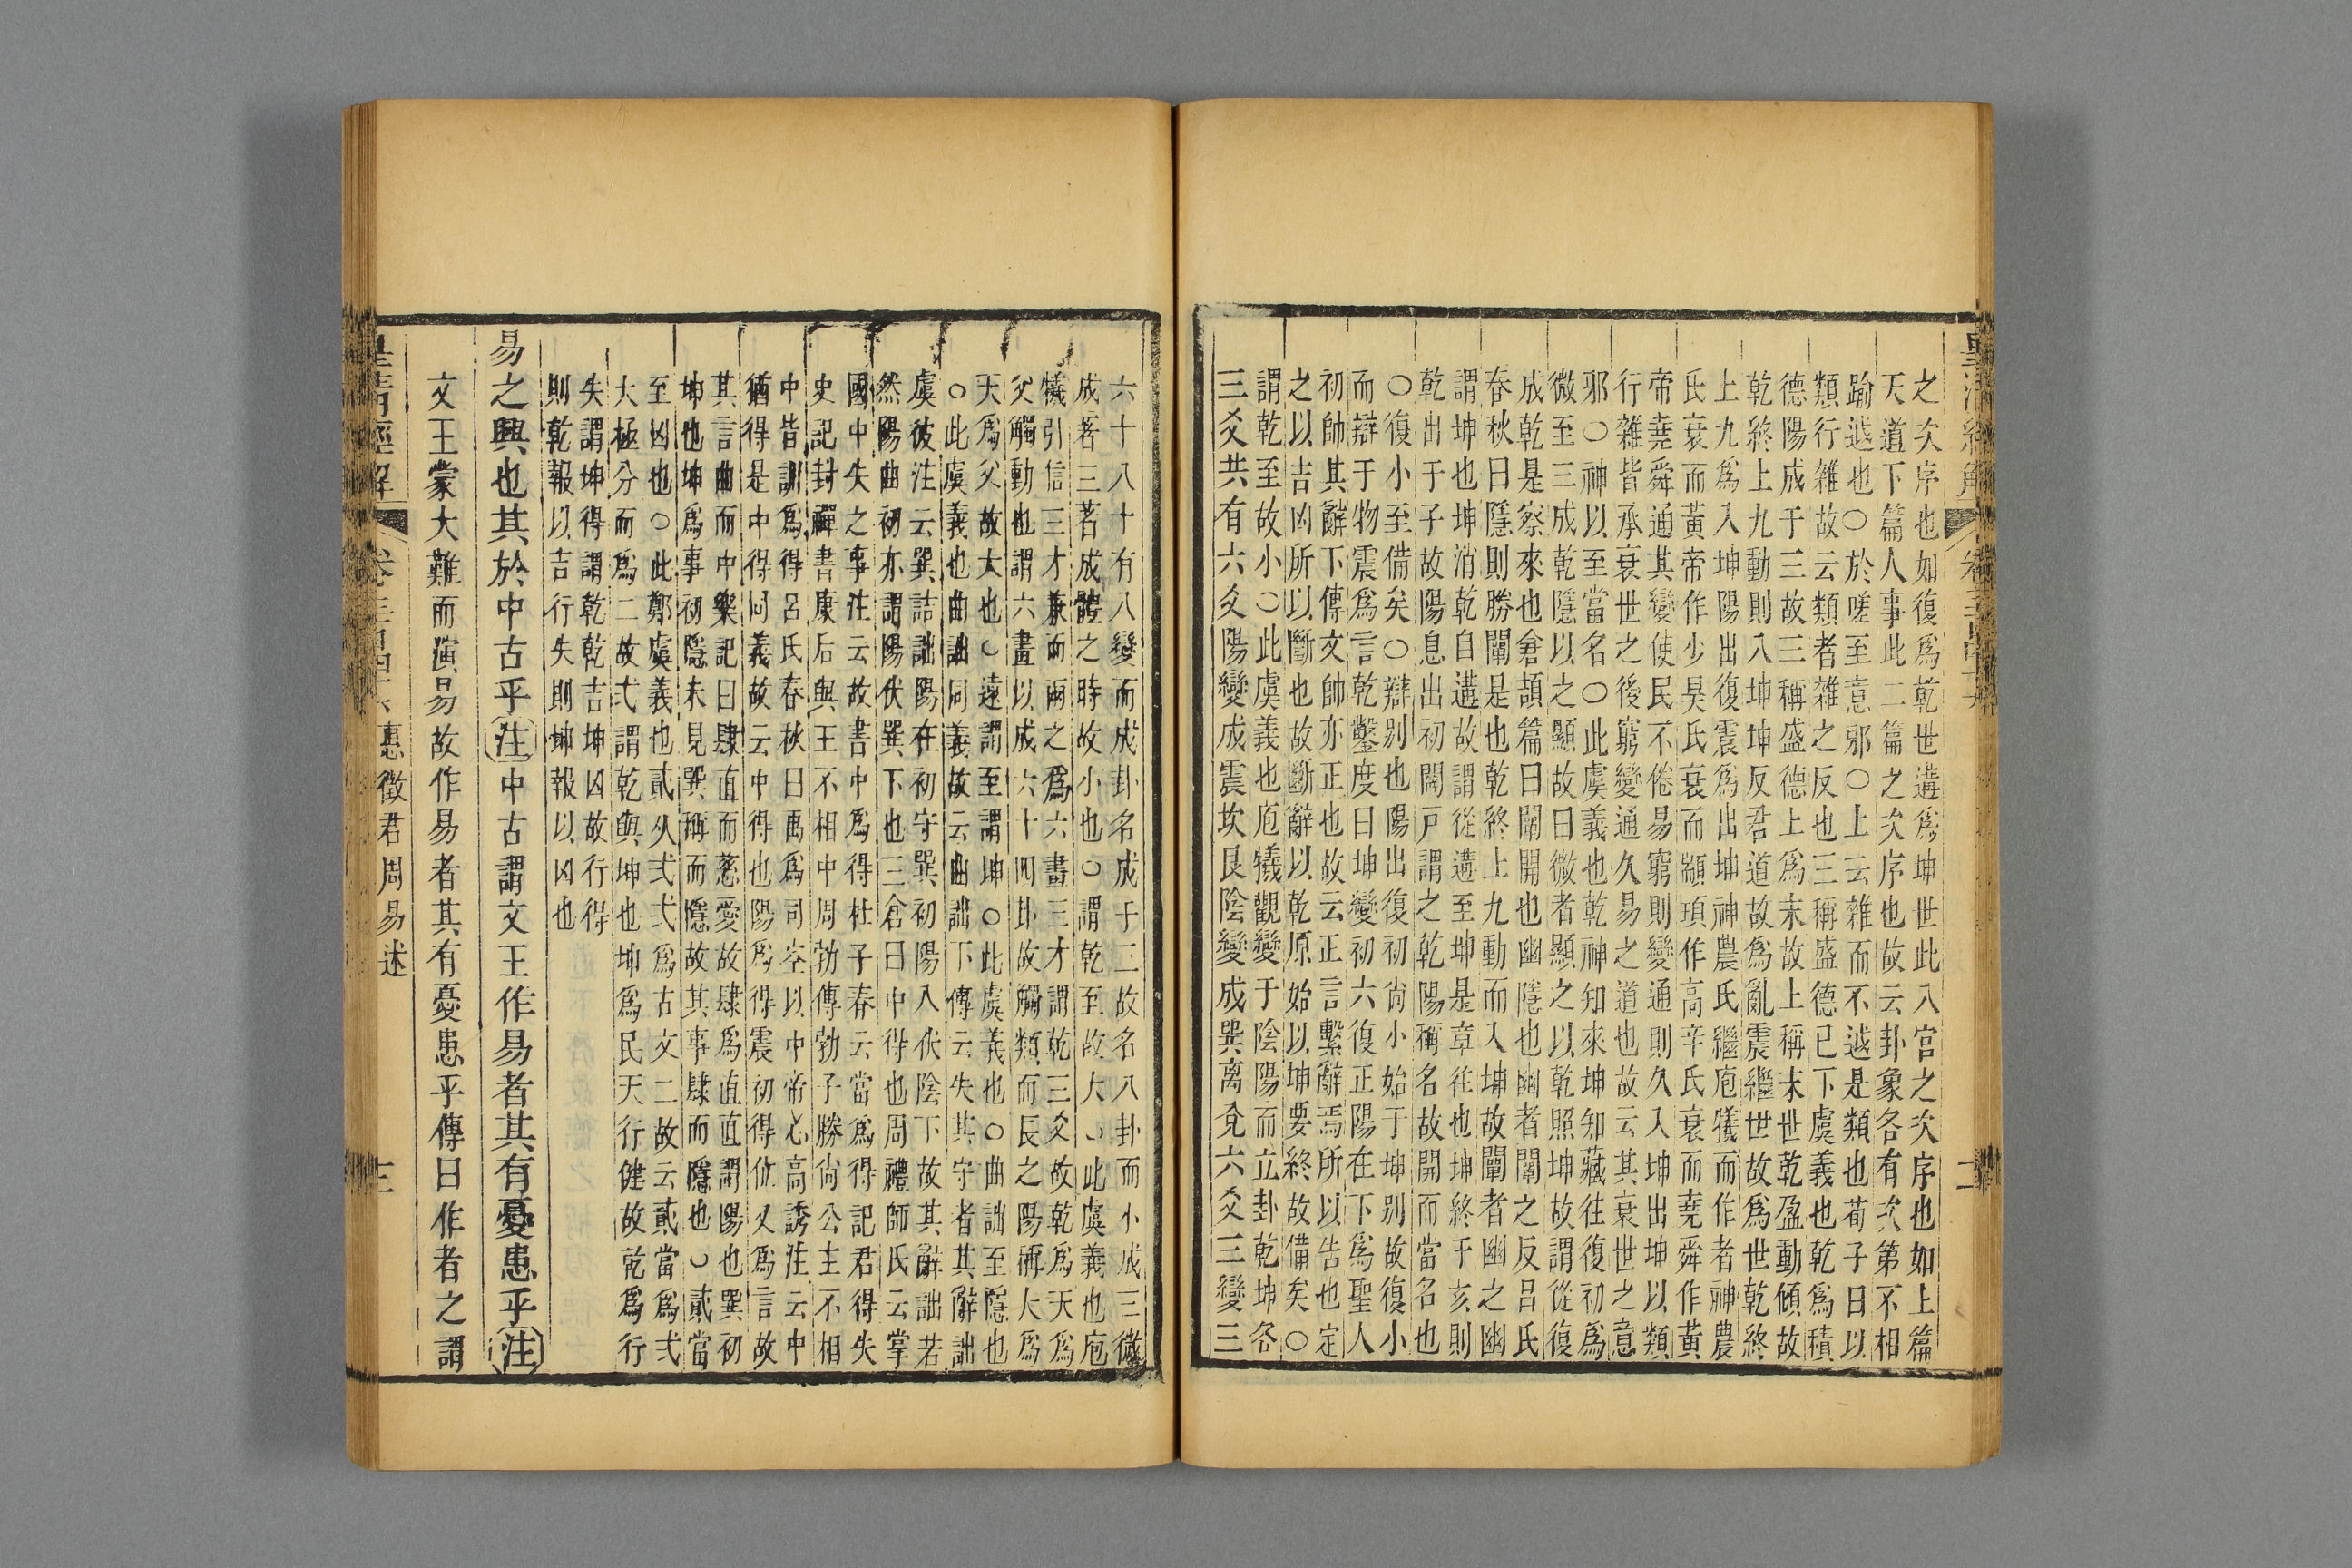 之次序也如復爲乾世遘爲坤世此八宮之次序也如上篇
天道下篇人事此二篇之次序也故云卦象各有次第不相
踰越也○於嗟至意邪○上云雜而不越是類也荀子曰以
類行雜故云類者雜之反也三稱盛德已下虞義也乾爲積
德陽成于三故三稱盛德上爲末故上稱末世乾盈動傾故
乾終上九動則入坤坤反君道故爲亂震繼世故爲世乾終
上九爲入坤陽出復震爲出坤神農氏繼庖犧而作者神農
氏衰而黃帝作少昊氏衰而顓頊作高辛氏衰而堯舜作黃
帝堯舜通其變使民不倦易窮則變通則久入坤出坤以類
行雜皆承衰世之後窮變通久易之道也故云其衰世之意
邪○神以至當名○此虞義也乾神知來坤知藏往復初爲
微至三成乾隱以之顯故曰微者顯之以乾照坤故謂從復
成乾是察來也倉頡篇曰闡開也幽隱也幽者闡之反呂氏
春秋曰隱則勝闡是也乾終上九動而入坤故闡者幽之幽
謂坤也坤消乾自遘故謂從遘至坤是章往也坤終于亥則
乾出于子故陽息出初闢戸謂之乾陽稱名故開而當名也
○復小至備矣○辯別也陽出復初尙小始于坤別故復小
而辯于物震爲言乾鑿度曰坤變初六復正陽在下爲聖人
初帥其辭下傳文帥亦正也故云正言繫辭焉所以告也定
之以吉凶所以斷也故斷辭以乾原始以坤要終故備矣○
謂乾至故小○此虞義也庖犧觀變于陰陽而立卦乾坤各
三爻共有六爻陽變成震坎艮陰變成巽离兌六爻三變三
六十八十有八變而成卦名成于三故名八卦而小成三微
成著三著成體之時故小也○謂乾至故大○此虞義也庖
犧引信三才兼而兩之爲六畫三才謂乾三爻故乾爲天爲
父觸動也謂六畫以成六十四卦故觸類而長之陽稱大爲
天爲父故大也○遠謂至謂坤○此虞義也○曲詘至隱也
○此虞義也曲詘同義故云曲詘下傳云失其守者其辭詘
虞彼注云巽詰詘陽在初守巽初陽入伏陰下故其辭詘若
然陽曲初亦謂陽伏巽下也三倉曰中得也周禮師氏云掌
國中失之事注云故書中爲得杜子春云當爲得記君得失
史記封禪書康后與王不相中周勃傳勃子勝尙公主不相
中皆訓爲得呂氏春秋曰禹爲司空以中帝心高誘注云中
猶得是中得同義故云中得也陽爲得震初得位又爲言故
其言曲而中樂記曰肆直而慈愛故肆爲直直謂陽也巽初
坤也坤爲事初隱未見巽稱而隱故其事肆而隱也○貳當
至凶也○此鄭虞義也貳从弍弍爲古文二故云貳當爲弍
大極分而爲二故弍謂乾與坤也坤爲民天行健故乾爲行
失謂坤得謂乾乾吉坤凶故行得
則乾報以吉行失則坤報以凶也
易之興也其於中古乎注中古謂文王作易者其有憂患乎注
文王蒙大難而演易故作易者其有憂患乎傳曰作者之謂
皇淸經解 卷三百四十六 惠徵君周易述 十三